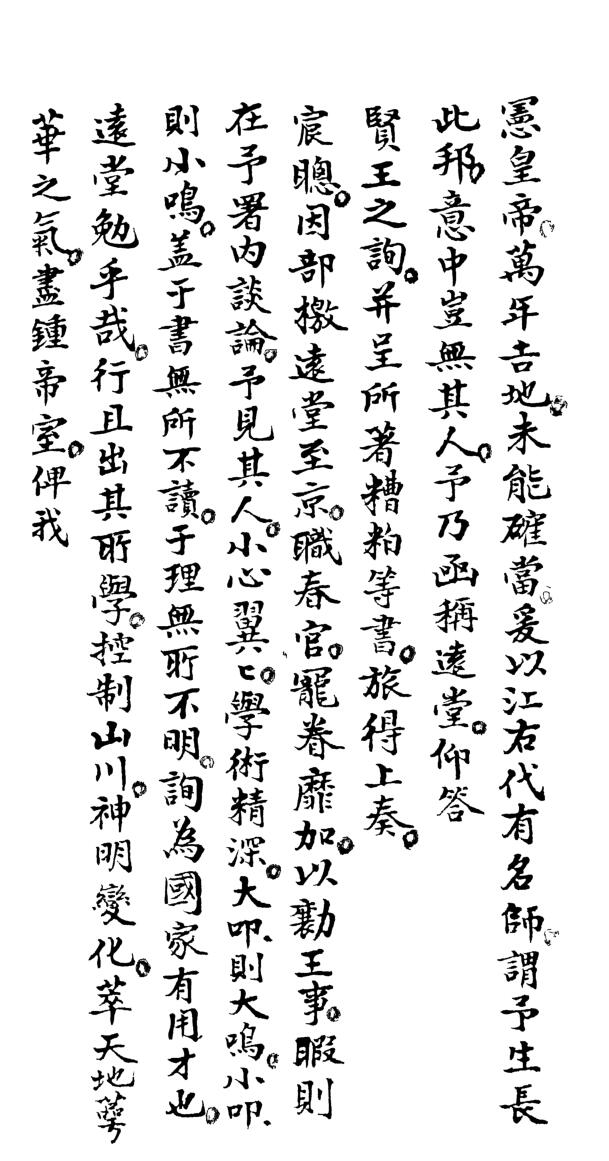 憲皇帝。萬年吉地。未能確當。爰以江右代有名師。謂予生長
此邦。意中豈無其人。予乃函稱遠堂。仰答
賢王之詢。并呈所著糟粕等書。旅得上奏。
宸聰。因部檄遠堂至京。職春官。寵眷靡加。以勷王事。暇則
在予署內談論。予見其人。小心翼〻。學術精深。大叩、則大鳴。小叩、
則小鳴。盖于書無所不讀。于理無所不明。詢為國家有用才也。
遠堂勉乎哉。行且出其所學。控制山川。神明變化。萃天地蕚
華之氣。盡鍾帝室。俾我